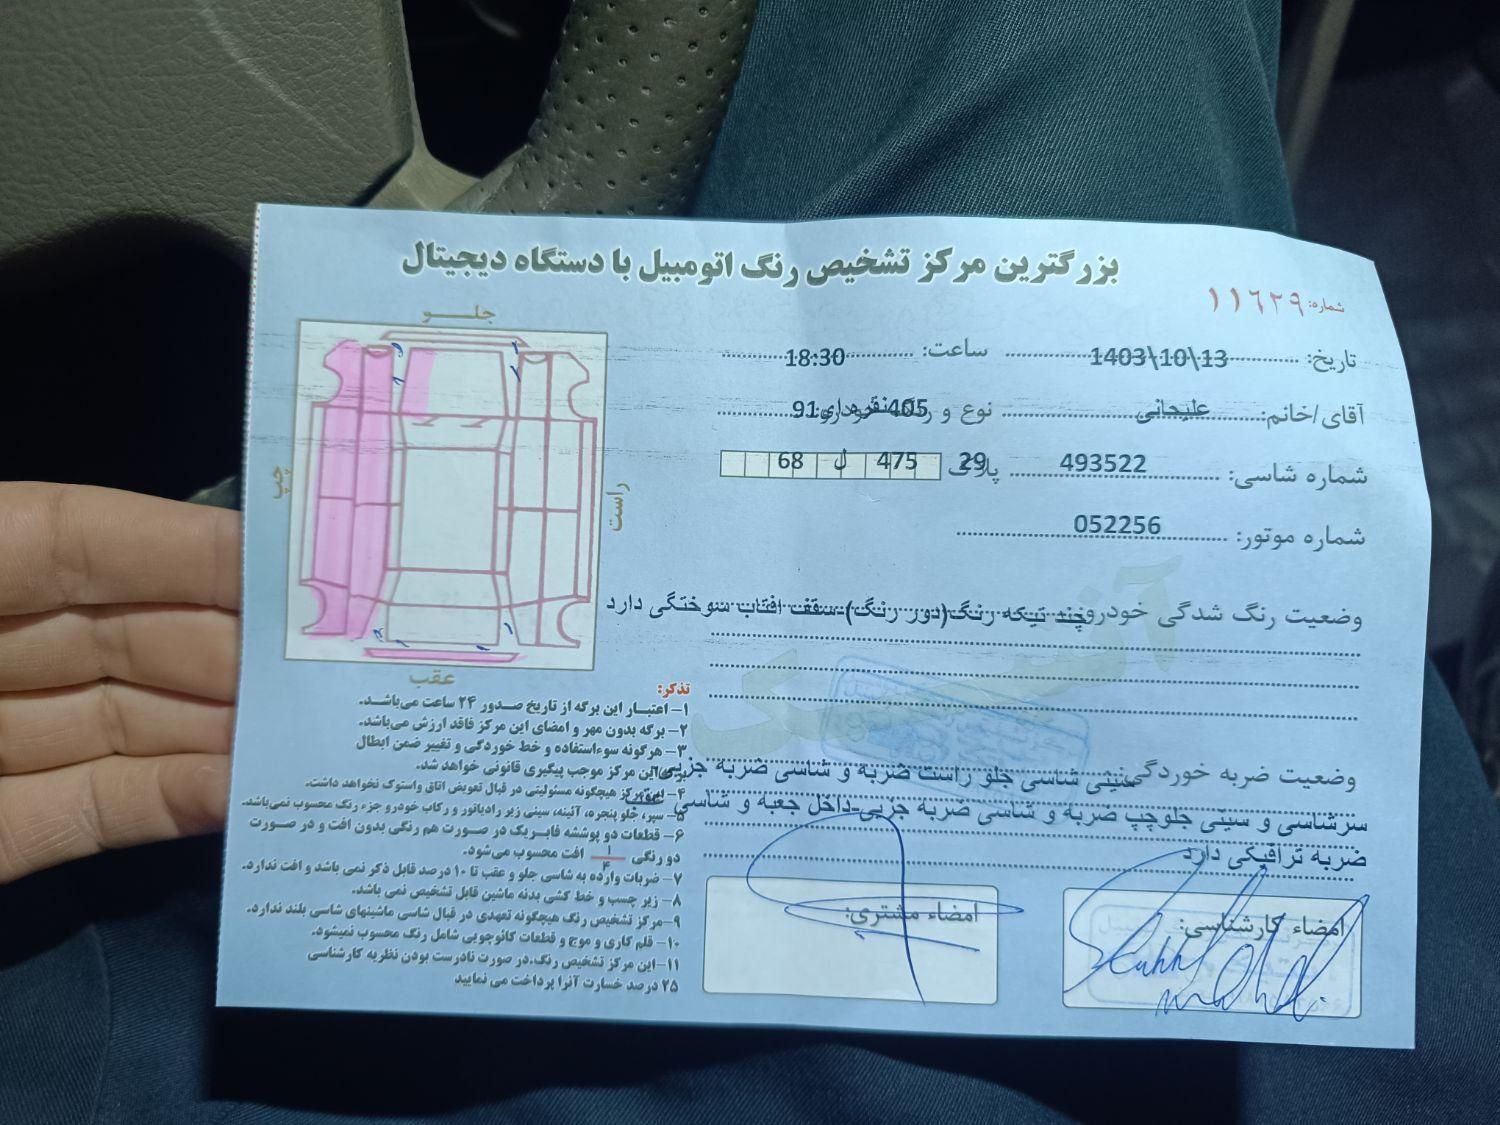 بزرگترین مرکز تشخیص رنگ اتومبیل با دستگاه دیجیتال
شماره: ۱۱٦۲۹
تاریخ: 1403\10\13 ساعت: 18:30
آقای/خانم: علیجانی نوع و رنگ 405 نقره ای 91
شماره شاسی: 493522 پلاک 29 475 ل 68
شماره موتور: 052256
وضعیت رنگ شدگی خودرو چند تیکه رنگ(دور رنگ)-سقف افتاب سوختگی دارد
وضعیت ضربه خوردگی سینی شاسی جلو راست ضربه و شاسی ضربه جزیی-
سرشاسی و سینی جلوچپ ضربه و شاسی ضربه جزیی-داخل جعبه و شاسی عقب
ضربه ترافیکی دارد
امضاء کارشناسی:
امضاء مشتری:
جلو
چپ
راست
عقب
تذکر:
۱- اعتبار این برگه از تاریخ صدور ۲۴ ساعت می‌باشد.
۲- برگه بدون مهر و امضای این مرکز فاقد ارزش می‌باشد.
۳- هرگونه سوءاستفاده و خط خوردگی و تغییر ضمن ابطال
برگه این مرکز موجب پیگیری قانونی خواهد شد.
۴- این مرکز هیچگونه مسئولیتی در قبال تعویض اتاق واستوک نخواهد داشت.
۵- سپر، جلو پنجره، آئینه، سینی زیر رادیاتور و رکاب خودرو جزء رنگ محسوب نمی‌باشد.
۶- قطعات دو پوششه فابریک در صورت هم رنگی بدون افت و در صورت
دو رنگی ۱/۴ افت محسوب می‌شود.
۷- ضربات وارده به شاسی جلو و عقب تا ۱۰ درصد قابل ذکر نمی باشد و افت ندارد.
۸- زیر چسب و خط کشی بدنه ماشین قابل تشخیص نمی باشد.
۹- مرکز تشخیص رنگ هیچگونه تعهدی در قبال شاسی ماشینهای شاسی بلند ندارد.
۱۰- قلم کاری و موج و قطعات کائوچویی شامل رنگ محسوب نمیشود.
۱۱- این مرکز تشخیص رنگ.در صورت نادرست بودن نظریه کارشناسی
۲۵ درصد خسارت آنرا پرداخت می نمایید